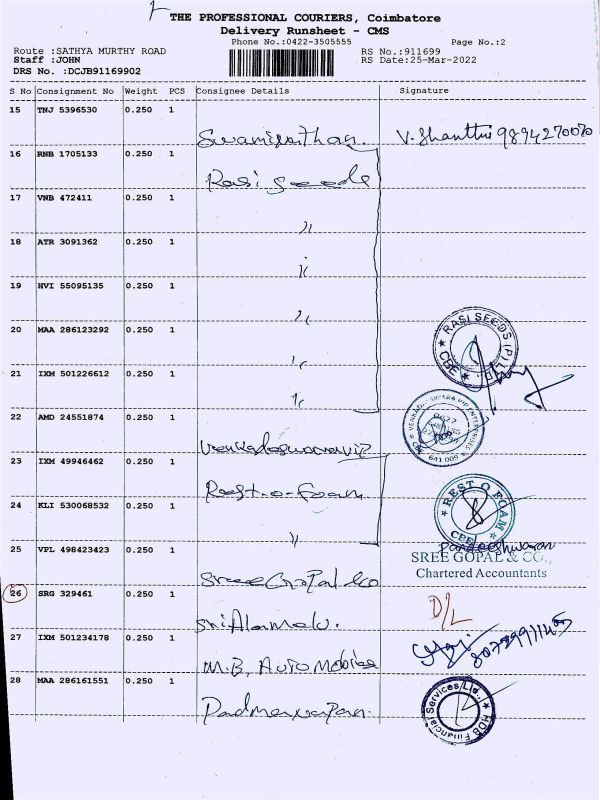 THE PROFESSIONAL COURIERS, Coimbatore
Delivery Runsheet - CMS
Phone No.:0422-3505555
Page No.:2
Route :SATHYA MURTHY ROAD
RS No.:911699
Staff :JOHN
RS Date:25-Mar-2022
DRS No. :DCJB91169902
S No Consignment No Weight PCS Consignee Details Signature
15 TNJ 5396530 0.250 1
Swaminathan. V. Shanthi 9894270070
16 RNB 1705133 0.250 1
Rasi Seeds
17 VNB 472411 0.250 1
18 ATR 3091362 0.250 1
19 HVI 55095135 0.250 1
20 MAA 286123292 0.250 1
RASI SEEDS (P) LTD. CBE
21 IXM 501226612 0.250 1
22 AMD 24551874 0.250 1
23 IXM 49946462 0.250 1
Rest-o-Foam
24 KLI 530068532 0.250 1
REST O FOAM CBE
25 VPL 498423423 0.250 1
SREE GOPAL & CO.,
Chartered Accountants
Sree Gopal &co
26 SRG 329461 0.250 1
D/L
Sri Alamelu.
27 IXM 501234178 0.250 1
M.B. Automobiles
28 MAA 286161551 0.250 1
HDB Financial Services Ltd.,